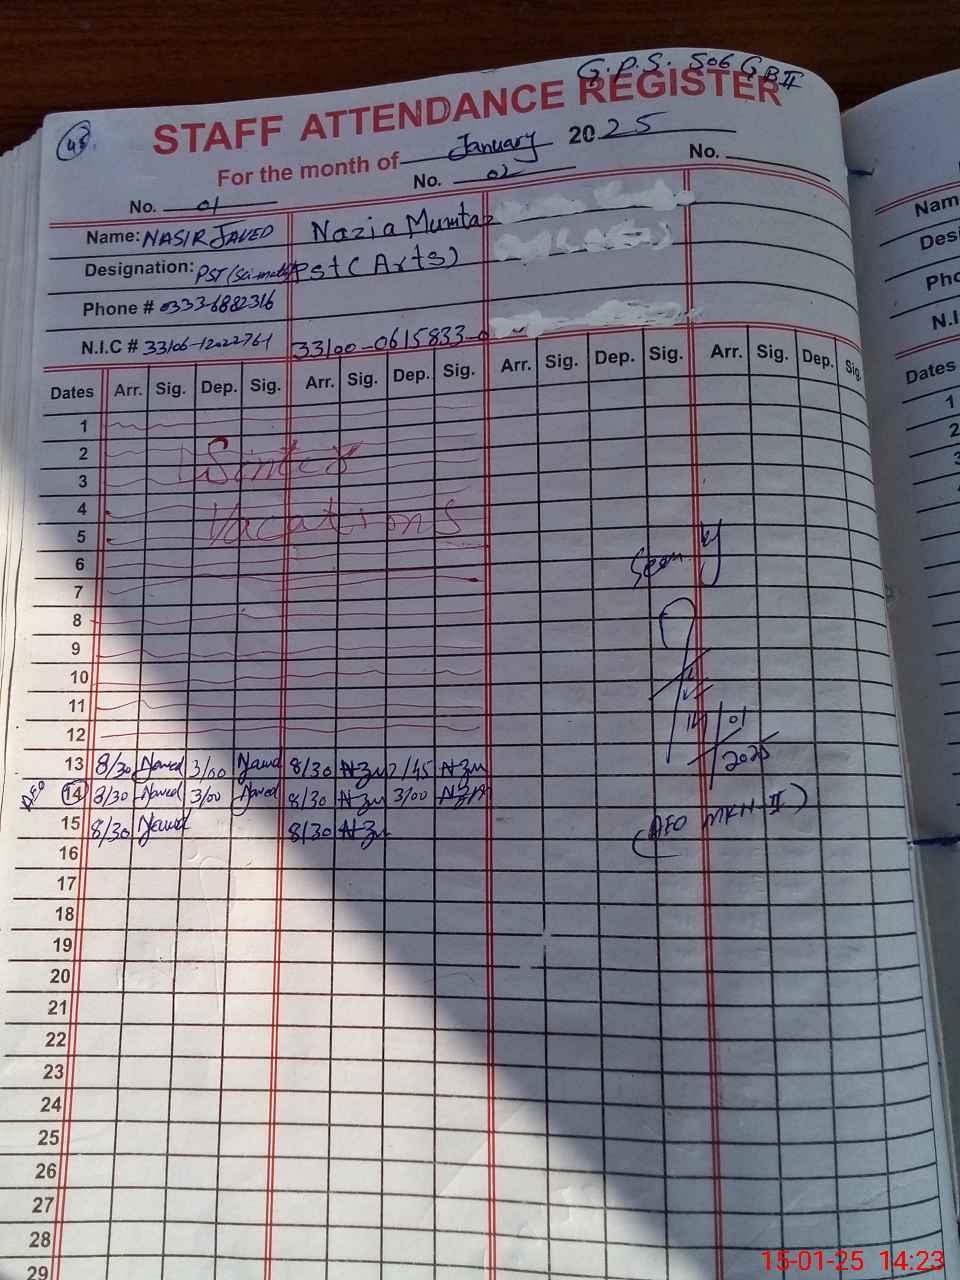 G.P.S. 506 GB II
48
STAFF ATTENDANCE REGISTER
For the month of January 2025
No. 01 No. 02 No.
Name: NASIR JAVED Nazia Mumtaz
Designation: PST (Sci-math) Pst (Arts)
Phone # 0333-6882316
N.I.C # 33100-0615833-0
Dates Arr. Sig. Dep. Sig. Arr. Sig. Dep. Sig. Arr. Sig. Dep. Sig. Arr. Sig. Dep. Sig.
1
2 Winter
3
4
5 Vacations
6 Seen by
7
8
9
10
11
12 14/01/2025
13 8/30 Javed 3/00 Javed 8/30 2/45
AEO 14 8/30 Javed 3/00 Javed 8/30 3/00
15 8/30 Javed 8/30 (AEO MKH-II)
16
17
18
19
20
21
22
23
24
25
26
27
28
29
Name
Desi
Pho
N.I
Dates
1
2
3
15-01-25 14:23